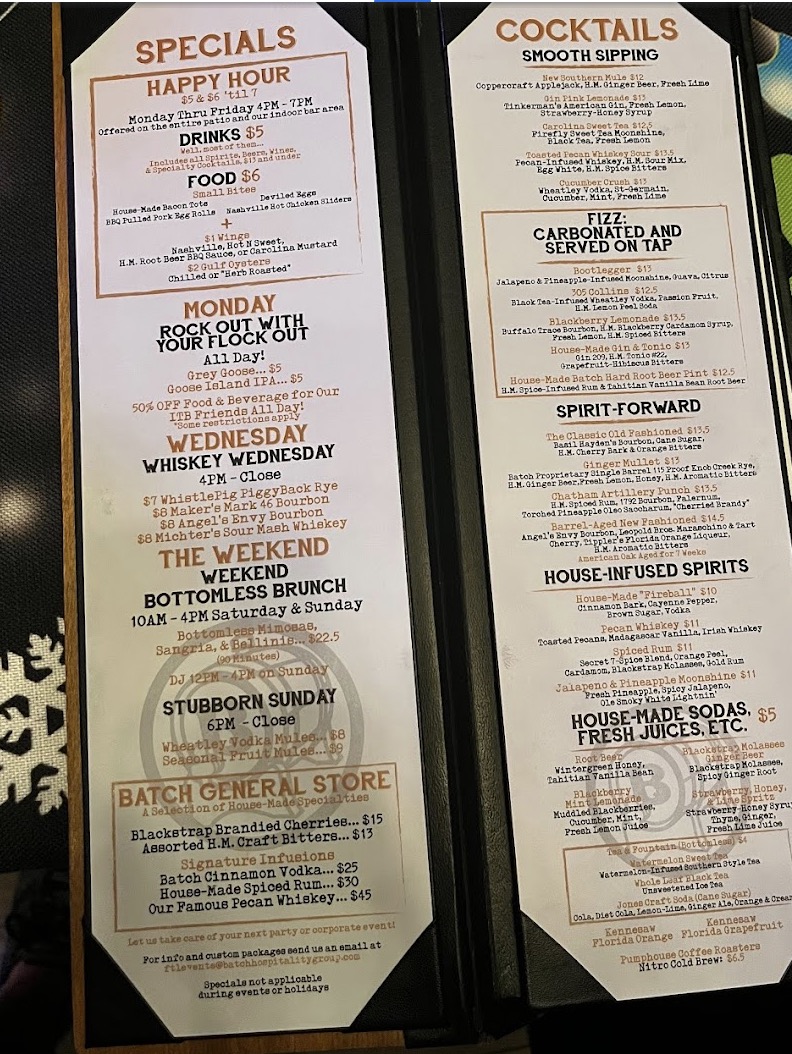 SPECIALS
HAPPY HOUR
$5 & $6 'til 7
Monday Thru Friday 4PM - 7PM
Offered on the entire patio and our indoor bar area
DRINKS $5
Well, most of them...
Includes all Spirits, Beers, Wines,
& Specialty Cocktails, $13 and under
FOOD $6
Small Bites
House-Made Bacon Tots
Deviled Eggs
BBQ Pulled Pork Egg Rolls
Nashville Hot Chicken Sliders
+
$1 Wings
Nashville, Hot N Sweet,
H.M. Root Beer BBQ Sauce, or Carolina Mustard
$2 Gulf Oysters
Chilled or "Herb Roasted"
MONDAY
ROCK OUT WITH
YOUR FLOCK OUT
All Day!
Grey Goose... $5
Goose Island IPA... $5
50% OFF Food & Beverage for Our
ITB Friends All Day!
*Some restrictions apply
WEDNESDAY
WHISKEY WEDNESDAY
4PM - Close
$7 WhistlePig PiggyBack Rye
$8 Maker's Mark 46 Bourbon
$8 Angel's Envy Bourbon
$8 Michter's Sour Mash Whiskey
THE WEEKEND
WEEKEND
BOTTOMLESS BRUNCH
10AM - 4PM Saturday & Sunday
Bottomless Mimosas,
Sangria, & Bellinis... $22.5
(90 Minutes)
DJ 12PM - 4PM on Sunday
STUBBORN SUNDAY
6PM - Close
Wheatley Vodka Mules... $8
Seasonal Fruit Mules... $9
BATCH GENERAL STORE
A Selection of House-Made Specialties
Blackstrap Brandied Cherries... $15
Assorted H.M. Craft Bitters... $13
Signature Infusions
Batch Cinnamon Vodka... $25
House-Made Spiced Rum... $30
Our Famous Pecan Whiskey... $45
Let us take care of your next party or corporate event!
For info and custom packages send us an email at
ftlevents@batchhospitalitygroup.com
Specials not applicable
during events or holidays
COCKTAILS
SMOOTH SIPPING
New Southern Mule $12
Coppercraft Applejack, H.M. Ginger Beer, Fresh Lime
Gin Pink Lemonade $13
Tinkerman's American Gin, Fresh Lemon,
Strawberry-Honey Syrup
Carolina Sweet Tea $12.5
Firefly Sweet Tea Moonshine,
Black Tea, Fresh Lemon
Toasted Pecan Whiskey Sour $13.5
Pecan-Infused Whiskey, H.M. Sour Mix,
Egg White, H.M. Spice Bitters
Cucumber Crush $13
Wheatley Vodka, St-Germain,
Cucumber, Mint, Fresh Lime
FIZZ:
CARBONATED AND
SERVED ON TAP
Bootlegger $13
Jalapeno & Pineapple-Infused Moonshine, Guava, Citrus
305 Collins $12.5
Black Tea-Infused Wheatley Vodka, Passion Fruit,
H.M. Lemon Peel Soda
Blackberry Lemonade $13.5
Buffalo Trace Bourbon, H.M. Blackberry Cardamom Syrup,
Fresh Lemon, H.M. Spiced Bitters
House-Made Gin & Tonic $13
Gin 209, H.M. Tonic #22,
Grapefruit-Hibiscus Bitters
House-Made Batch Hard Root Beer Pint $12.5
H.M. Spice-Infused Rum & Tahitian Vanilla Bean Root Beer
SPIRIT-FORWARD
The Classic Old Fashioned $13.5
Basil Hayden's Bourbon, Cane Sugar,
H.M. Cherry Bark & Orange Bitters
Ginger Mullet $13
Batch Proprietary Single Barrel 115 Proof Knob Creek Rye,
H.M. Ginger Beer, Fresh Lemon, Honey, H.M. Aromatic Bitters
Chatham Artillery Punch $13.5
H.M. Spiced Rum, 1792 Bourbon, Falernum,
Torched Pineapple Oleo Saccharum, "Cherried Brandy"
Barrel-Aged New Fashioned $14.5
Angel's Envy Bourbon, Leopold Bros. Maraschino & Tart
Cherry, Tippler's Florida Orange Liqueur,
H.M. Aromatic Bitters
American Oak Aged for 7 Weeks
HOUSE-INFUSED SPIRITS
House-Made "Fireball" $10
Cinnamon Bark, Cayenne Pepper,
Brown Sugar, Vodka
Pecan Whiskey $11
Toasted Pecans, Madagascar Vanilla, Irish Whiskey
Spiced Rum $11
Secret 7-Spice Blend, Orange Peel,
Cardamom, Blackstrap Molasses, Gold Rum
Jalapeno & Pineapple Moonshine $11
Fresh Pineapple, Spicy Jalapeno,
Ole Smoky White Lightnin'
HOUSE-MADE SODAS,
FRESH JUICES, ETC. $5
Root Beer
Wintergreen Honey,
Tahitian Vanilla Bean
Blackstrap Molasses
Ginger Beer
Blackstrap Molasses,
Spicy Ginger Root
Blackberry
Mint Lemonade
Muddled Blackberries,
Cucumber, Mint,
Fresh Lemon Juice
Strawberry, Honey,
& Lime Spritz
Strawberry-Honey Syru
Thyme, Ginger,
Fresh Lime Juice
Tea & Fountain (Bottomless) $4
Watermelon Sweet Tea
Watermelon-Infused Southern Style Tea
Whole Leaf Black Tea
Unsweetened Ice Tea
Jones Craft Soda (Cane Sugar)
Cola, Diet Cola, Lemon-Lime, Ginger Ale, Orange & Cream
Kennesaw
Florida Orange
Kennesaw
Florida Grapefruit
Pumphouse Coffee Roasters
Nitro Cold Brew: $6.5
B